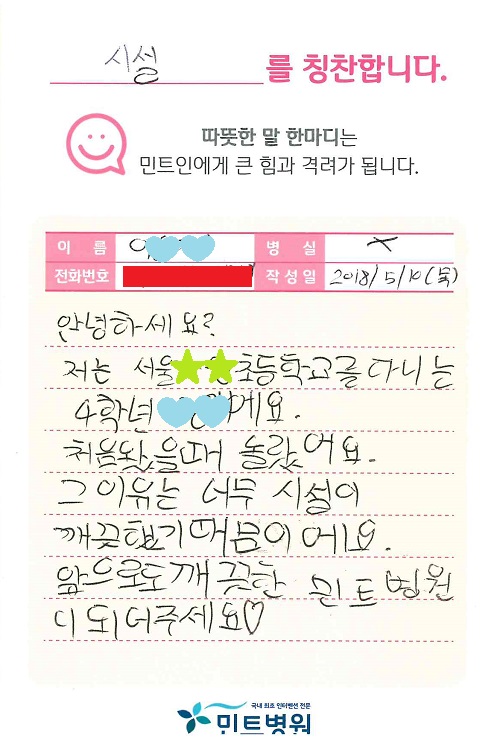 시설 를 칭찬합니다.
따뜻한 말 한마디는
민트인에게 큰 힘과 격려가 됩니다.
이 름 병 실 X
전화번호 작성일 2018/5/10(목)
안녕하세요?
저는 서울 초등학교를 다니는
4학년 예요.
처음왔을때 놀랐어요.
그 이유는 너무 시설이
깨끗했기때문이에요.
앞으로도 깨끗한 민트병원
이 되어주세요♡
국내 최초 인터벤션 전문
민트병원